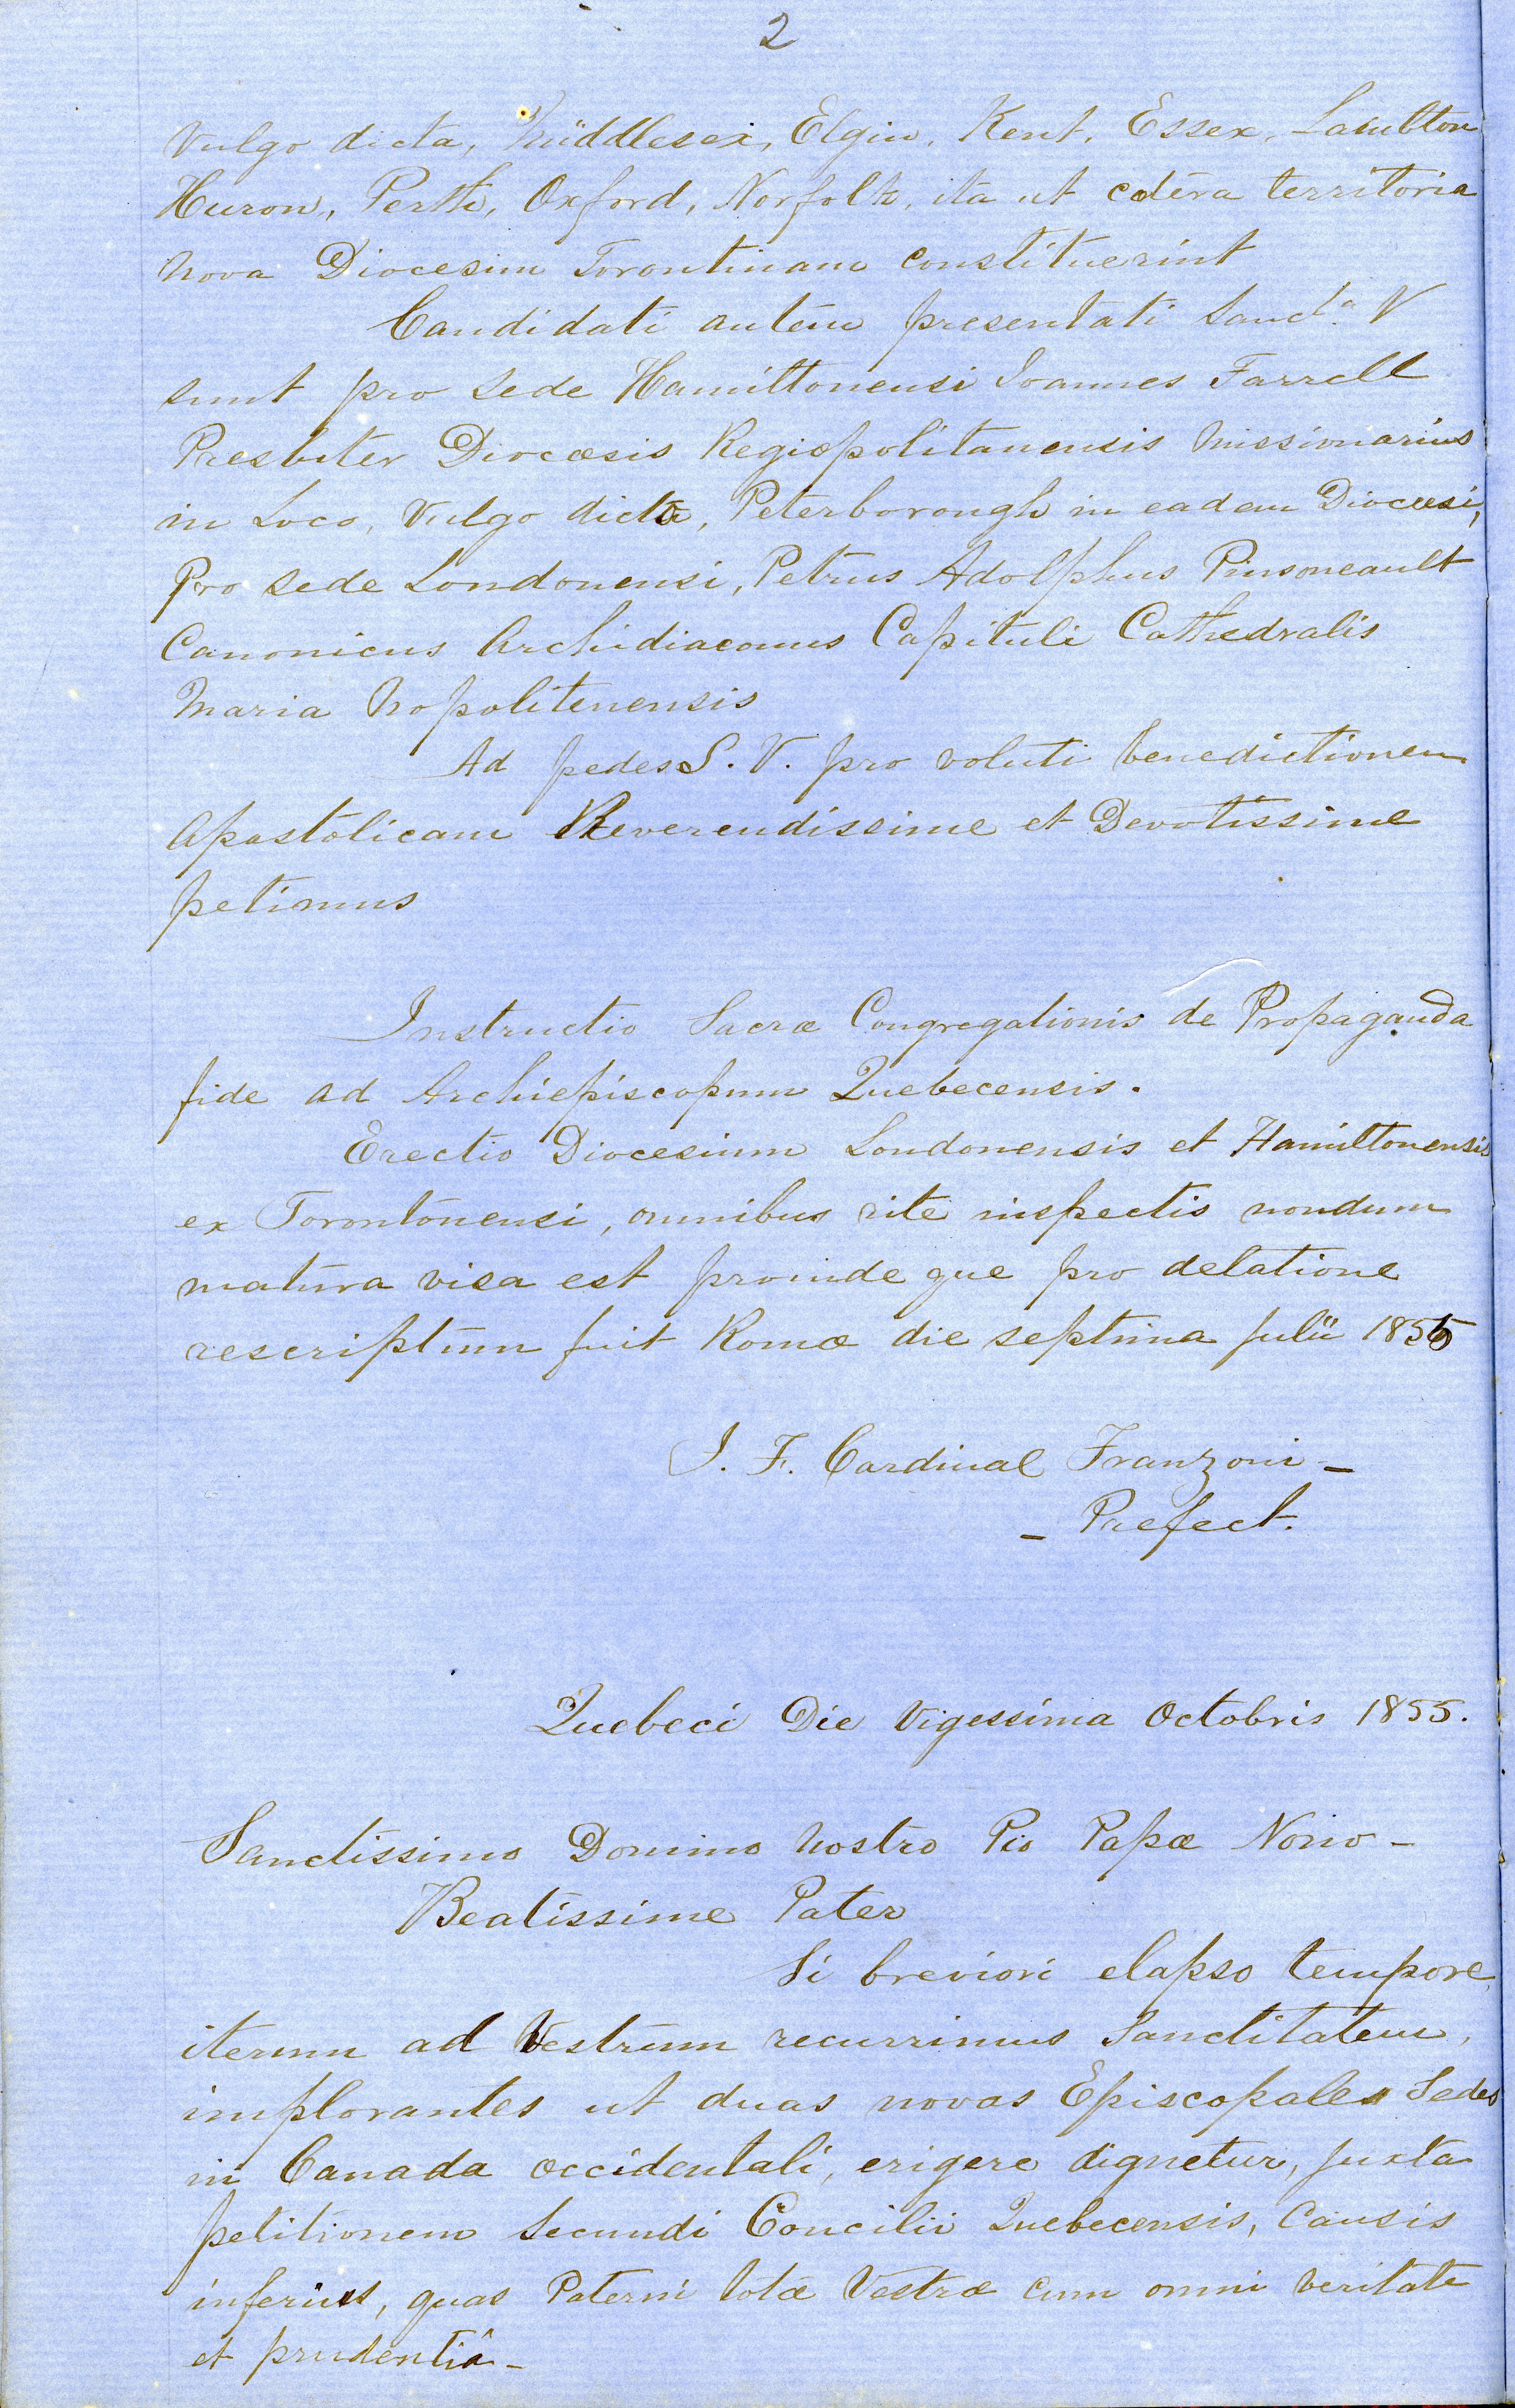 2
Vulgo dicta, Middlesex, Elgin, Kent, Essex, Lambton
Huron, Perth, Oxford, Norfolk, ita ut cætera territoria
nova Diocesim Torontinam constituerint
Candidati autem presentati Sanct.ª V
sunt pro Sede Hamiltonensi Joannes Farrell
Presbiter Diocæsis Regiopolitanensis Missionarius
in Loco, Vulgo dicto, Peterborough in eadem Diocæsi,
Pro Sede Londonensi, Petrus Adolphus Pinsoneault
Canonicus Archidiaconus Capituli Cathedralis
Maria Nopolitenensis
Ad pedes S. V. pro voluti benedictionem
Apostolicam Reverendissime et Devotissime
petimus
Instructio Sacræ Congregationis de Propaganda
fide ad Archiepiscopum Quebecensis.
Erectio Diocesium Londonensis et Hamiltonensis
ex Torontonensi, omnibus rite inspectis nondum
matura visa est proinde que pro delatione
rescriptum fuit Romæ die septima Julii 1855
J. F. Cardinal Franzoni -
- Prefect.
Quebeci Die Vigessima Octobris 1855.
Sanctissimo Domino Nostro Pio Papæ Nono -
Beatissime Pater
Si breviori elapso tempore,
iterum ad Vestrum recurrimus Sanctitatem,
implorantes ut duas novas Episcopales Sedes
in Canada occidentali, erigere dignetur, juxta
petitionem Secundi Concilii Quebecensis, Causis
inferius, quas Paterni totæ Vestræ cum omni veritate
et prudentiâ -